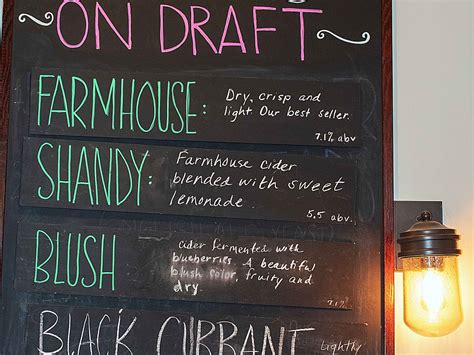 ON DRAFT
FARMHOUSE:
Dry, crisp and
light. Our best seller.
7.1% abv
SHANDY:
Farmhouse cider
blended with sweet
lemonade.
5.5 abv.
BLUSH
cider fermented with
blueberries. A beautiful
blush color, fruity and
dry.
7.1% abv
BLACK CURRANT
Lightly